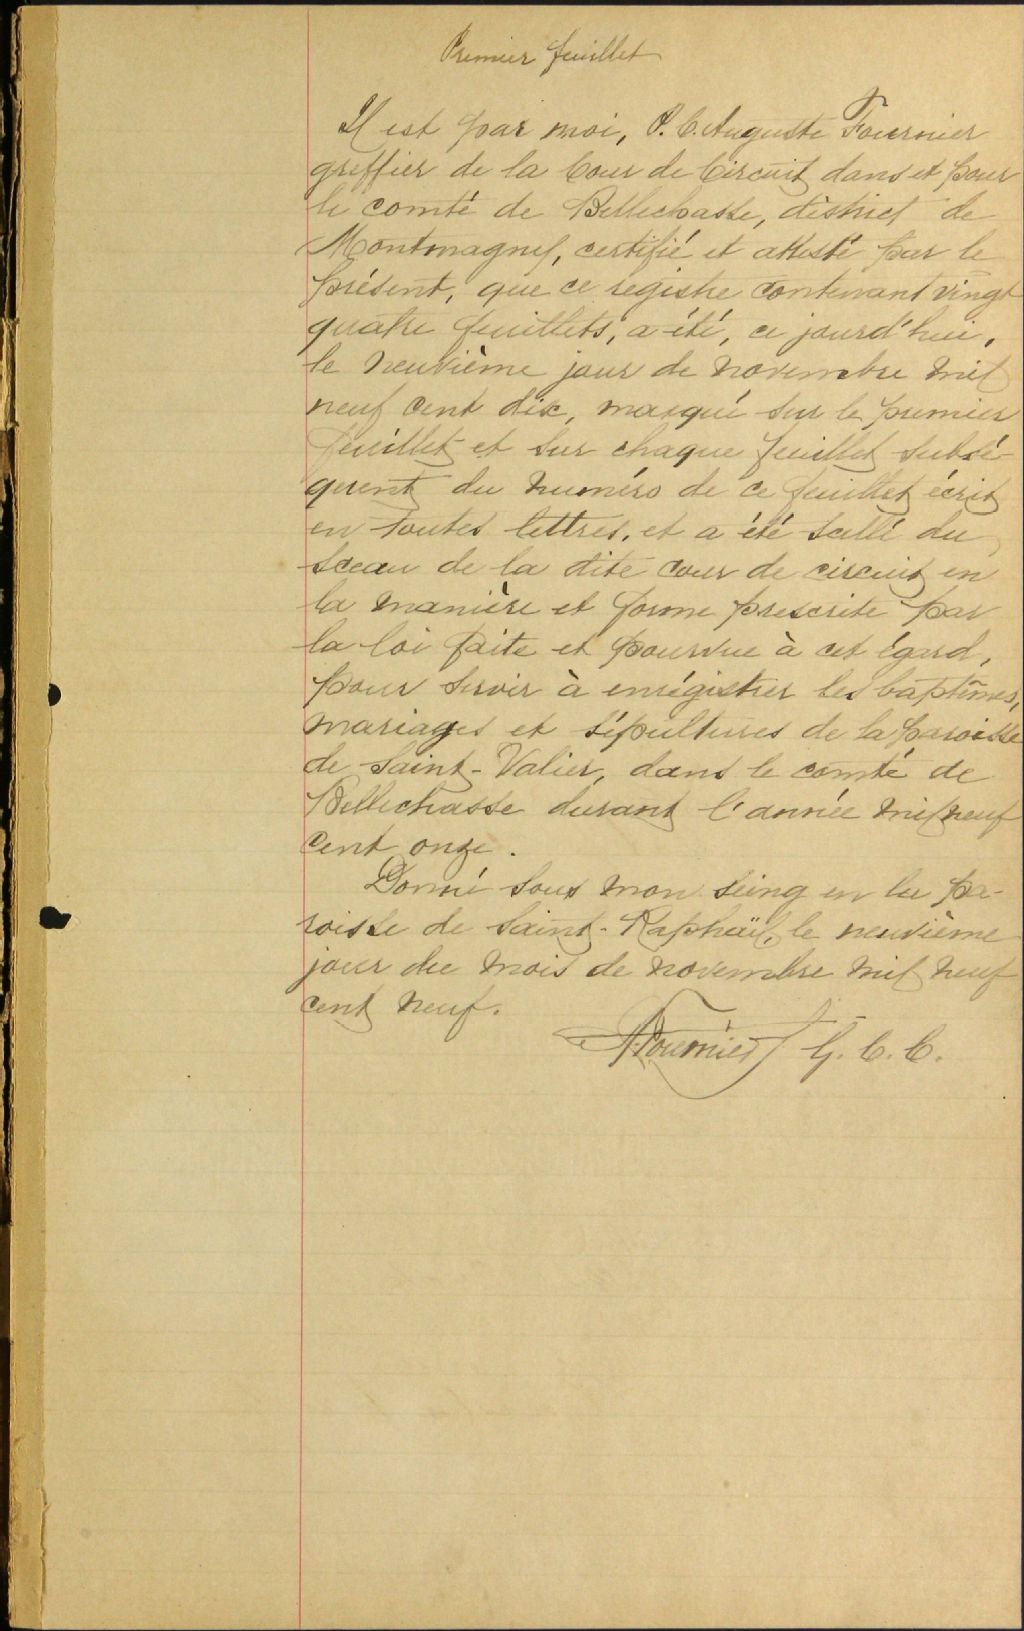 Premier feuillet
Il est par moi, P. C. Auguste Fournier
greffier de la Cour de Circuit dans et pour
le comté de Bellechasse, district de
Montmagny, certifié et attesté par le
présent, que ce registre contenant vingt
quatre feuillets, a été, ce jourd'hui,
le neuvième jour de novembre mil
neuf cent dix, marqué sur le premier
feuillet et sur chaque feuillet subsé-
quent du numéro de ce feuillet écrit
en toutes lettres, et a été scellé du
sceau de la dite cour de circuit en
la manière et forme prescrite par
la loi faite et pourvue à cet égard,
pour servir à enrégistrer les baptêmes,
mariages et sépultures de la paroisse
de Saint-Valier, dans le comté de
Bellechasse durant l'année mil neuf
cent onze.
Donné sous mon seing en la pa-
roisse de Saint-Raphaël, le neuvième
jour du mois de novembre mil neuf
cent neuf.
A. Fournier G. C. C.